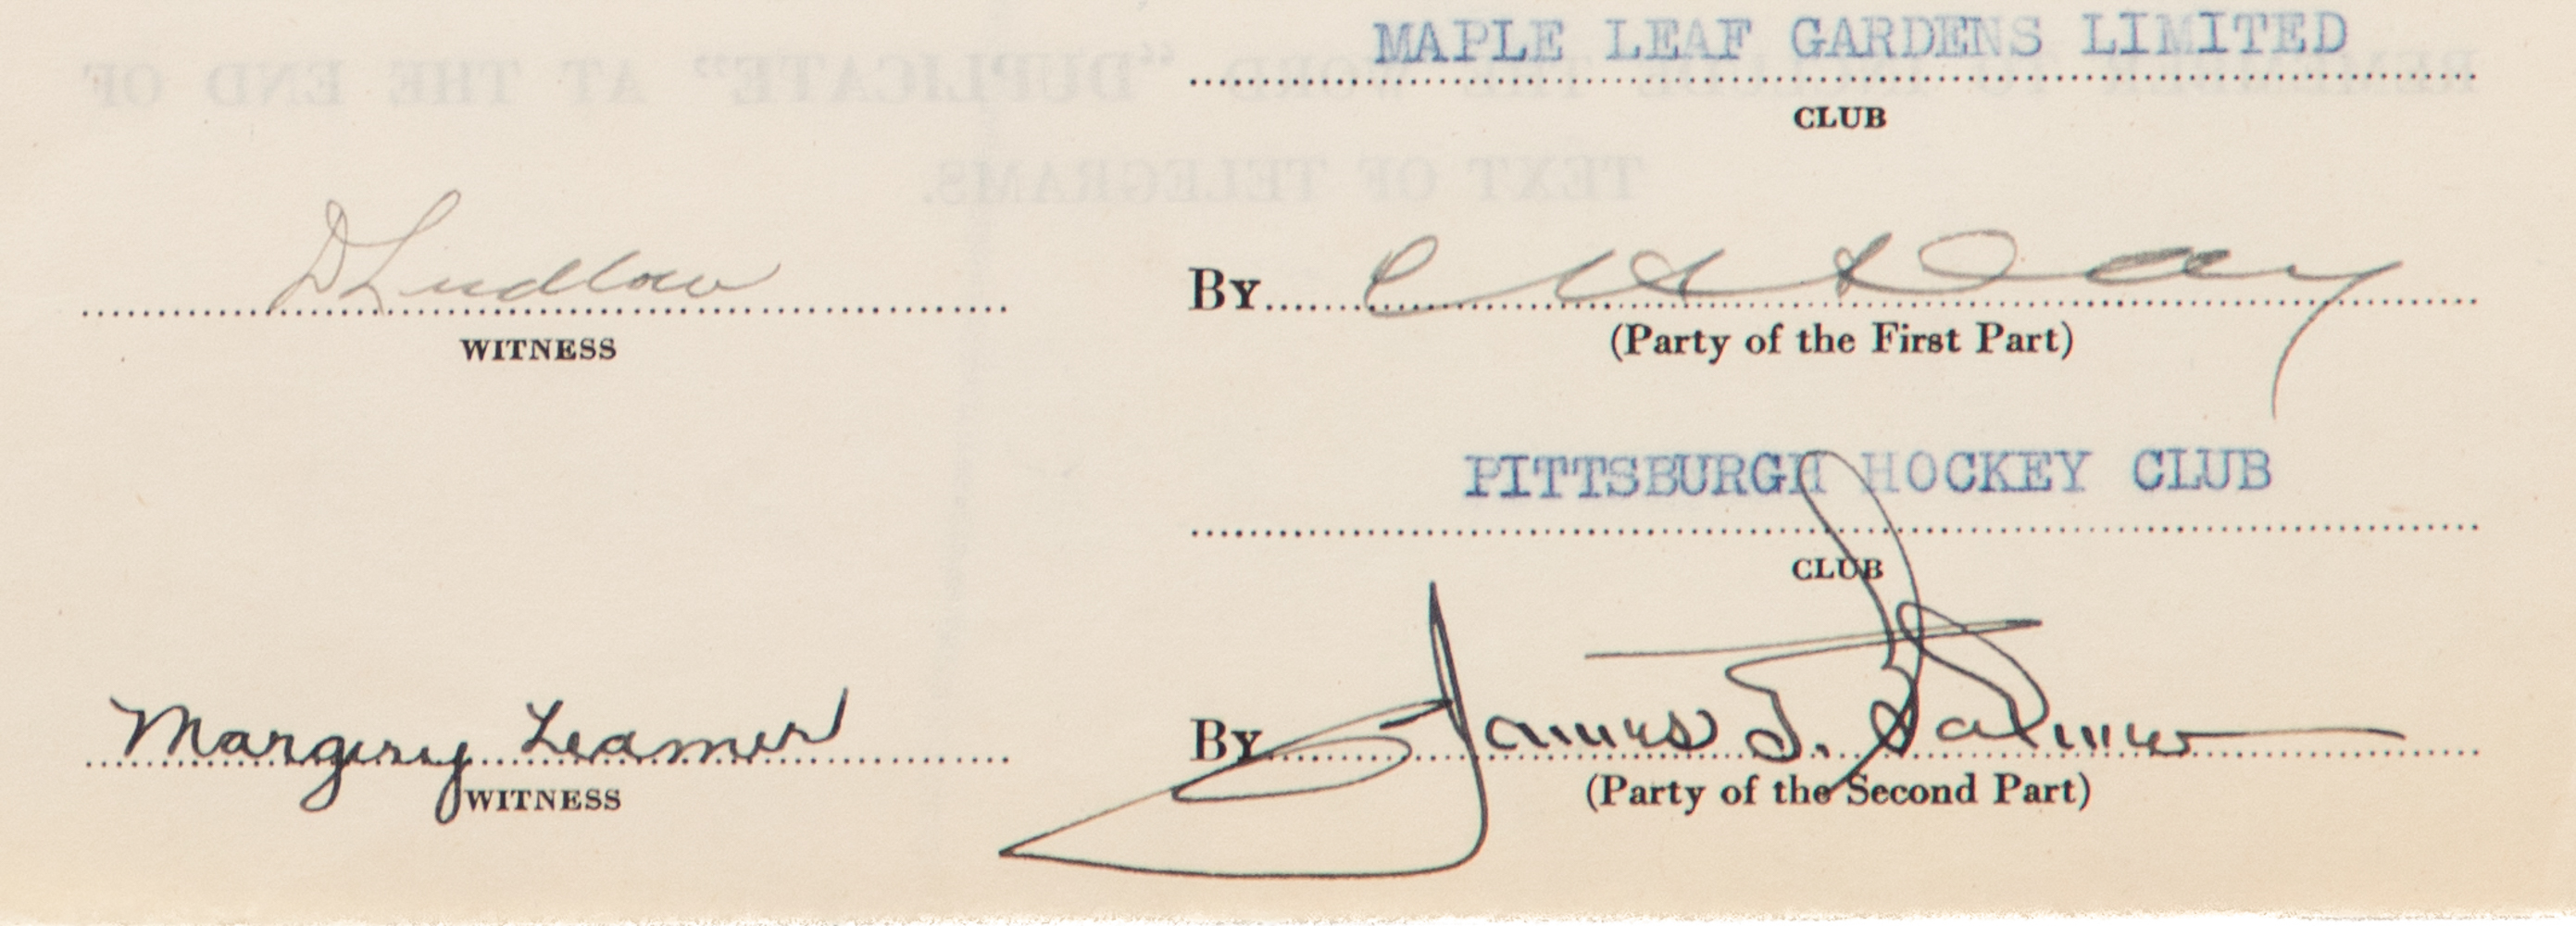 MAPLE LEAF GARDENS LIMITED
CLUB
D Ludlow
WITNESS
By C H Day
(Party of the First Part)
PITTSBURGH HOCKEY CLUB
CLUB
Margery Leamer
WITNESS
By James G. Balmer
(Party of the Second Part)